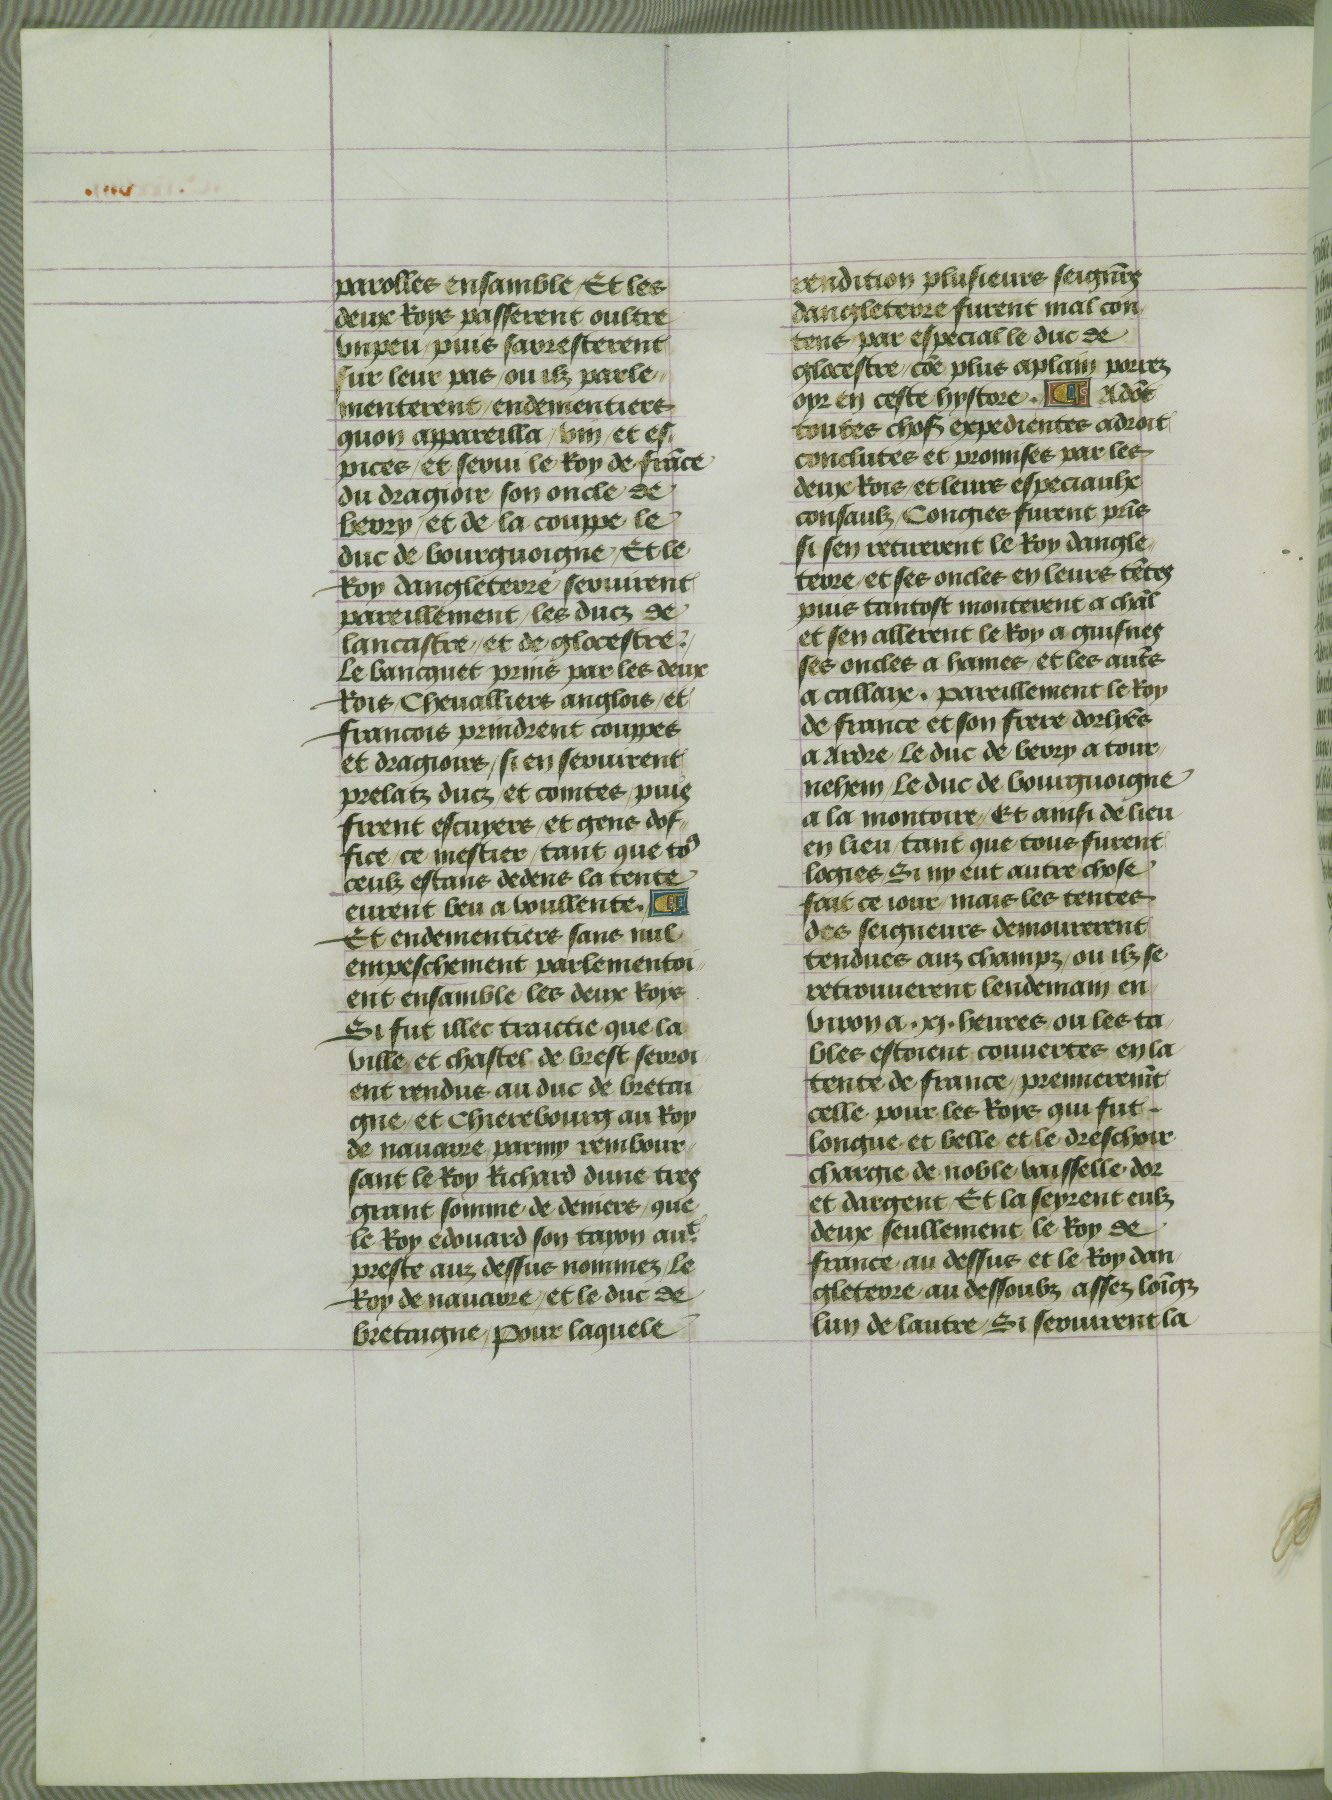 parolles ensamble / Et les
deux Roys passerent oultre
vnpeu / puis sarresterent
sur leur pas / ou ilz parle /
menterent / endementiers
quon appareilla / vin / et es /
pices / et serui le Roy de frāce
du dragioir son oncle de
berry / et de la couppe le
duc de bourguoigne / Et le
Roy dangleterre seruirent
pareillement / les ducz de
lancastre / et de glocestre /
Le bancquet prins par les deux
Rois / Cheualliers anglois / et
francois prindrent couppes
et dragioirs / si en seruirent
prelatz ducz / et comtes / puis
firent escuyers / et gens dof /
fice / ce mestier / tant que to9
ceulz estans dedens la tente
eurent beu a voullente .
Et endementiers sans nul
empeschement parlementoi /
ent ensamble les deux Roys
Si fut illec traictie que la
ville / et chastel de brest seroi /
ent rendus au duc de bretai
gne / et Chierebourg au Roy
de nauarre parmy rembour /
sant le Roy Richard dune tres
grant sōmme de deniers / que
le Roy edouard son tayon aut
preste auz dessus nommez / Le
Roy de nauarre / et le duc de
bretaigne / Pour laquele
rendition plusieurs seignrs̄
dangleterre furent mal con
tens / par especial le duc de
glocestre / cōe plus aplain porrez
oyr en ceste hystore . Adōc
toutes chos expedientes adroit
conclutes et promises par les
deux Rois / et leurs especiaulx
consaulz / Congies furent pris̄
si sen retirerent le Roy dangle /
terre / et ses oncles en leurs tētes
puis tantost monterent a chāl
et sen allerent le Roy a guisnes
ses oncles a hames / et les aut̄s
a callaix . pareillement le Roy
de france et son frere dorliēs
a Ardre / Le duc de berry a tour /
nehem / Le duc de bourguoigne
a la montoire / Et ainsi de lieu
en lieu / tant que tous furent
logies / Si ny eut autre chose
fait ce iour / mais les tentes
des seigneurs demourerent
tendues auz champz / ou ilz se
retrouuerent lendemain en
viron a . xj . heures / ou les ta /
bles estoient couuertes en la
tente de france / premieremt̄
celle pour les Roys qui fut -
longue et belle et le dreschoir
chargie de noble vaisselle dor
et dargent / Et la seyrent eulz
deux seullement / le Roy de
france au dessus et le Roy dan /
gleterre / au dessoubz / assez loīgz
lun de lautre / Si seruirent la